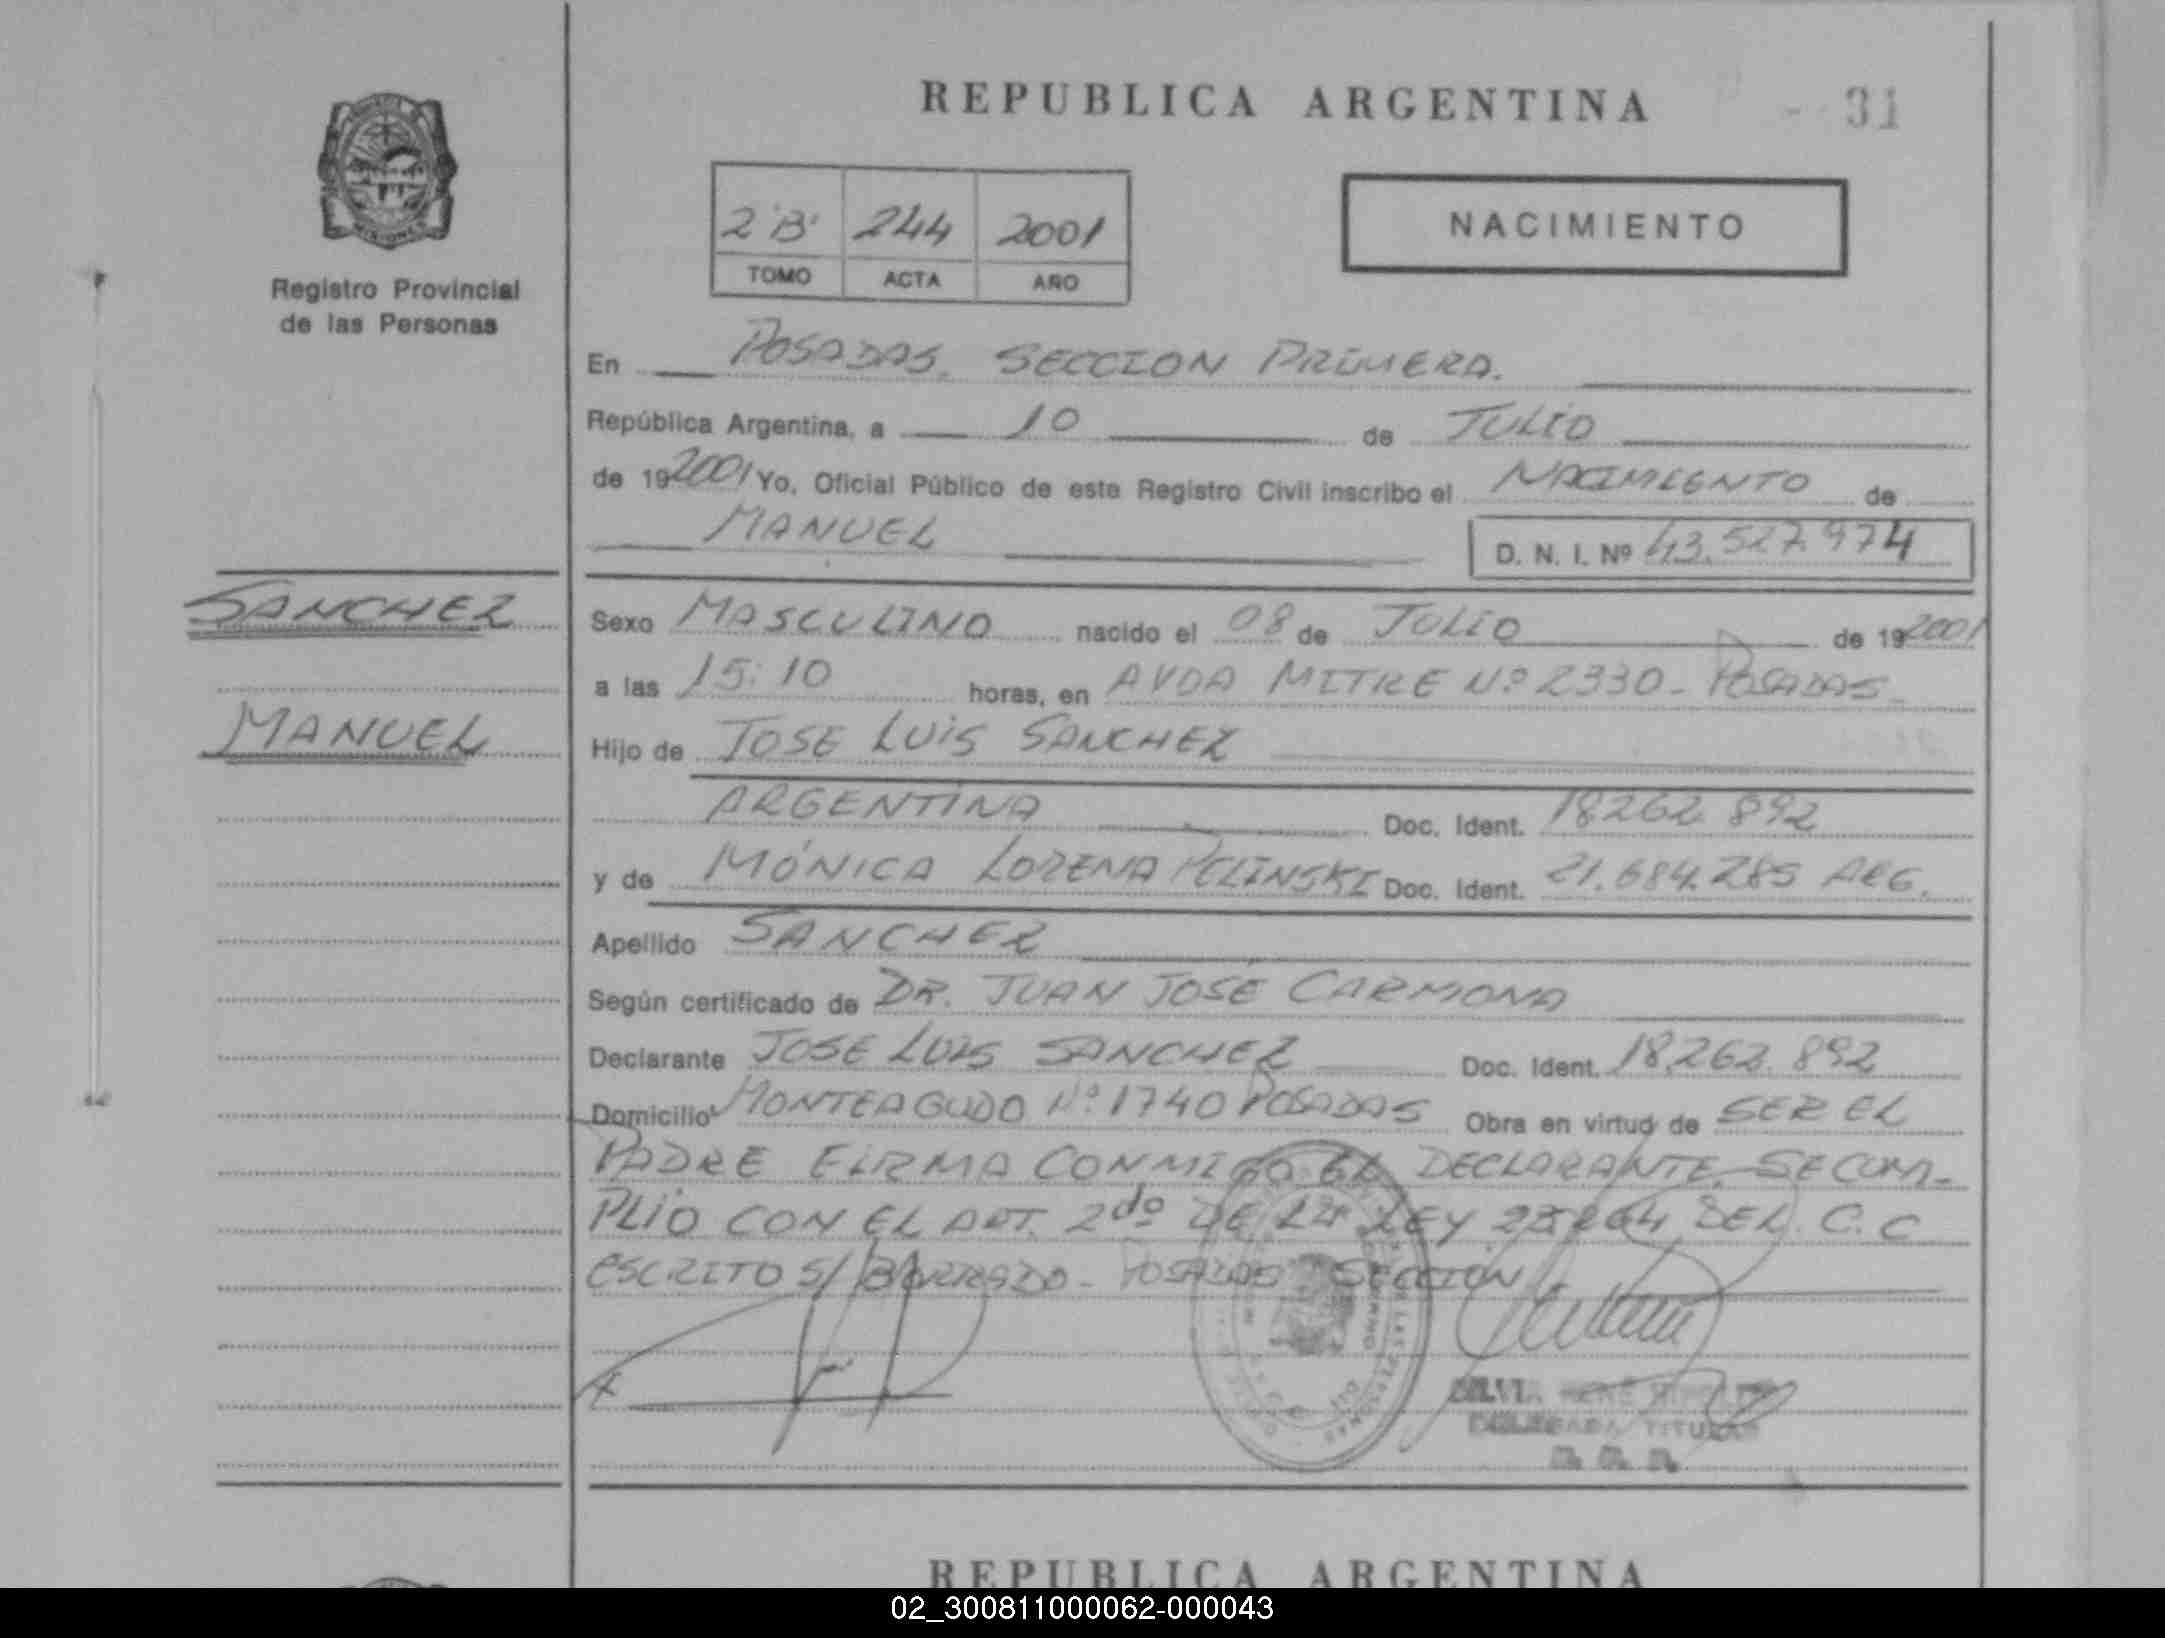 REPUBLICA ARGENTINA - 31
2 "B" 244 2001
TOMO ACTA AÑO
NACIMIENTO
MISIONES
Registro Provincial
de las Personas
En POSADAS. SECCION PRIMERA.
República Argentina, a 10 de JULIO
de 19 2001 Yo, Oficial Público de este Registro Civil inscribo el NACIMIENTO de
MANUEL D. N. I. Nº 43.527.974
SANCHEZ
MANUEL
Sexo MASCULINO nacido el 08 de JULIO de 19 2001
a las 15:10 horas, en AVDA MITRE Nº 2330 - POSADAS -
Hijo de JOSE LUIS SANCHEZ
ARGENTINA Doc. Ident. 18.262.892
y de MÓNICA LORENA PELINSKI Doc. Ident. 21.684.285 ARG.
Apellido SANCHEZ
Según certificado de DR. JUAN JOSE CARMONA
Declarante JOSE LUIS SANCHEZ Doc. Ident. 18.262.892
Domicilio MONTEAGUDO Nº 1740 POSADAS Obra en virtud de SER EL
PADRE FIRMA CONMIGO EL DECLARANTE. SE CUM-
PLIO CON EL ART. 2do DE LA LEY 23264 DEL C.C
ESCRITO S/ BORRADO - POSADAS SECCION
DELEGADA TITULAR
REPUBLICA ARGENTINA
02_300811000062-000043